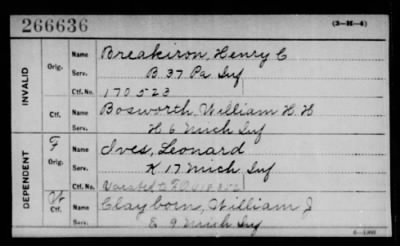 266636 (3-H-4)
INVALID Orig. Name Breakiron, Henry C
Serv. B 37 Pa Inf
Ctf. No. 170523
Ctf. Name Bosworth William H. H
Serv. H 6 Mich Inf
DEPENDENT Orig. Name Ives, Leonard
Serv. K 17 Mich Inf
Ctf. No. Vacated
Ctf. Name Clayborn, William J
Serv. E 9 Mich Inf